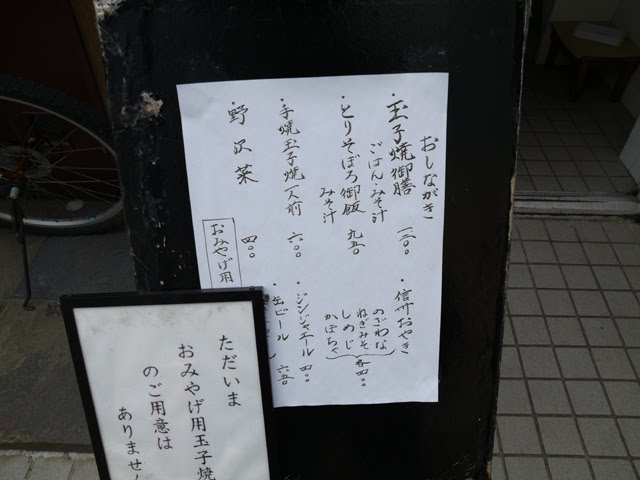 おしながき
・玉子焼御膳
ごはん・みそ汁
一二〇〇
・とりそぼろ御飯
みそ汁
九五〇
・手焼玉子焼一人前
六〇〇
・野沢菜
四〇〇
・信州おやき
のざわな
ねぎみそ
しめじ
かぼちゃ
各四〇〇
・ジンジャエール
四〇〇
・缶ビール
六五〇
おみやげ用
ただいま
おみやげ用玉子焼
のご用意は
ありません